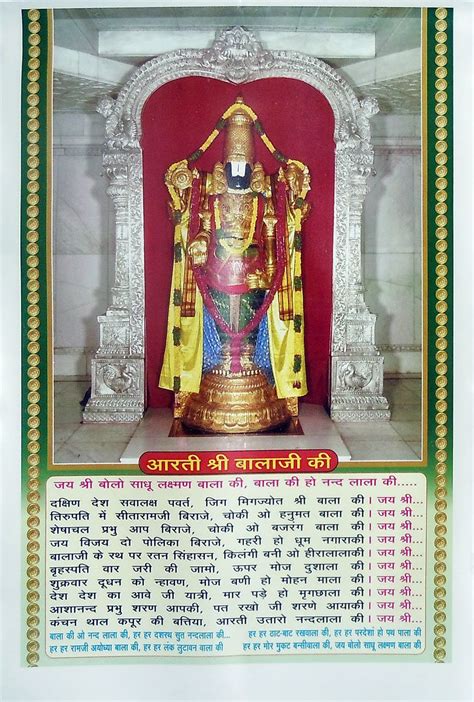 आरती श्री बालाजी की
जय श्री बोलो साधू लक्ष्मण बाला की, बाला की हो नन्द लाला की.....
दक्षिण देश सवालक्ष पवर्त, जिग मिगज्योत श्री बाला की । जय श्री...
तिरुपति में सीतारामजी बिराजे, चोकी ओ हनुमत बाला की । जय श्री...
शेषाचल प्रभु आप बिराजे, चोकी ओ बजरंग बाला की । जय श्री...
जय विजय दो पोलिका बिराजे, गहरी हो धूम नगाराकी । जय श्री...
बालाजी के रथ पर रतन सिंहासन, किलंगी बनी ओ हीरालालाकी । जय श्री...
बृहस्पति वार जरी की जामो, ऊपर मोज दुशाला की । जय श्री...
शुक्रवार दूधन को न्हावण, मोज बणी हो मोहन माला की । जय श्री...
देश देश का आवे जी यात्री, मार पड़े हो मृगछाला की । जय श्री...
आशानन्द प्रभु शरण आपकी, पत रखो जी शरणे आयाकी । जय श्री...
कंचन थाल कपूर की बत्तिया, आरती उतारो नन्दलाला की । जय श्री...
बाला की ओ नन्द लाला की, हर हर दशरथ सुत नन्दलाला की... हर हर ठाट-बाट रखवाला की, हर हर परदेशां हो पथ पाला की
हर हर रामजी अयोध्या बाला की, हर हर लंक लुटावन बाला की हर हर मोर मुकट बन्सीवाला की, जय बोलो साधू लक्ष्मण बाला की